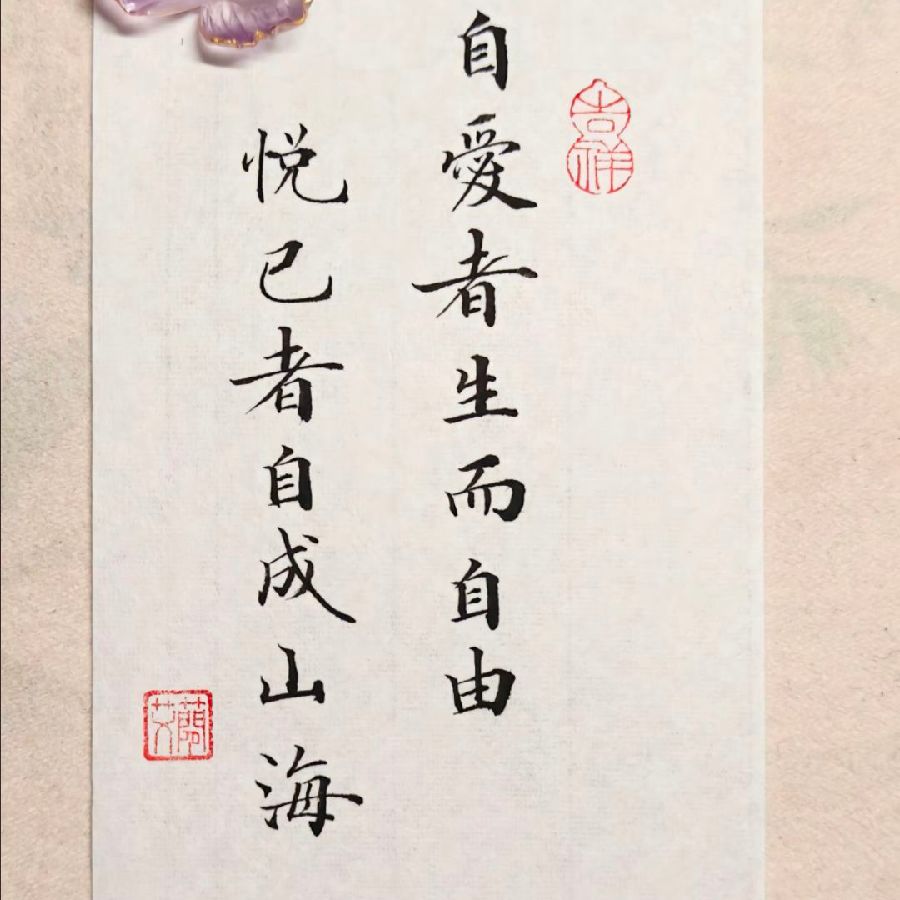 自愛者生而自由
悦己者自成山海
吉祥